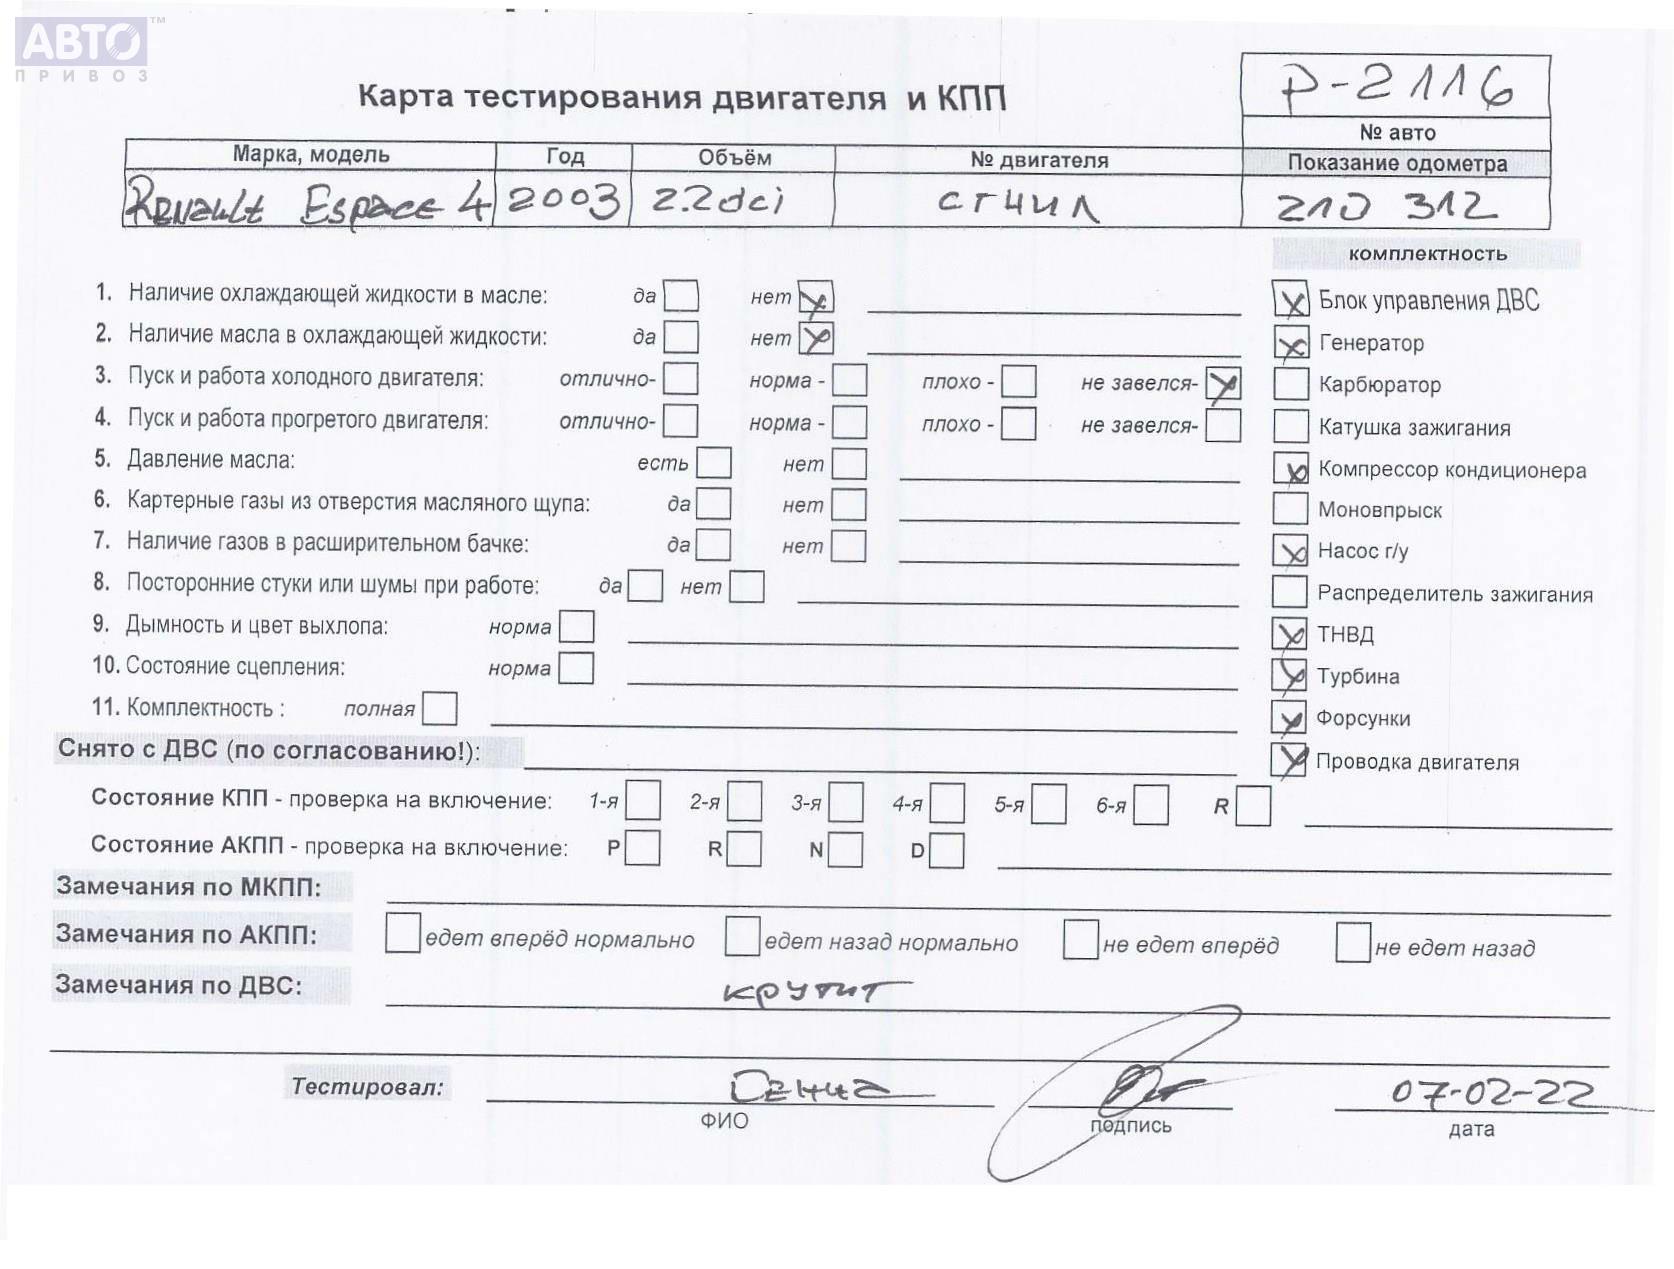 АВТО™
ПРИВОЗ
Карта тестирования двигателя и КПП
P-2116
№ авто
Марка, модель Год Объём № двигателя Показание одометра
Renault Espace 4 2003 2.2dci сгнил 210 312
комплектность
1. Наличие охлаждающей жидкости в масле: да нет Блок управления ДВС
2. Наличие масла в охлаждающей жидкости: да нет Генератор
3. Пуск и работа холодного двигателя: отлично- норма - плохо - не завелся- Карбюратор
4. Пуск и работа прогретого двигателя: отлично- норма - плохо - не завелся- Катушка зажигания
5. Давление масла: есть нет Компрессор кондиционера
6. Картерные газы из отверстия масляного щупа: да нет Моновпрыск
7. Наличие газов в расширительном бачке: да нет Насос г/у
8. Посторонние стуки или шумы при работе: да нет Распределитель зажигания
9. Дымность и цвет выхлопа: норма ТНВД
10. Состояние сцепления: норма Турбина
11. Комплектность : полная Форсунки
Снято с ДВС (по согласованию!): Проводка двигателя
Состояние КПП - проверка на включение: 1-я 2-я 3-я 4-я 5-я 6-я R
Состояние АКПП - проверка на включение: P R N D
Замечания по МКПП:
Замечания по АКПП: едет вперёд нормально едет назад нормально не едет вперёд не едет назад
Замечания по ДВС: крутит
Тестировал: 07-02-22
ФИО подпись дата